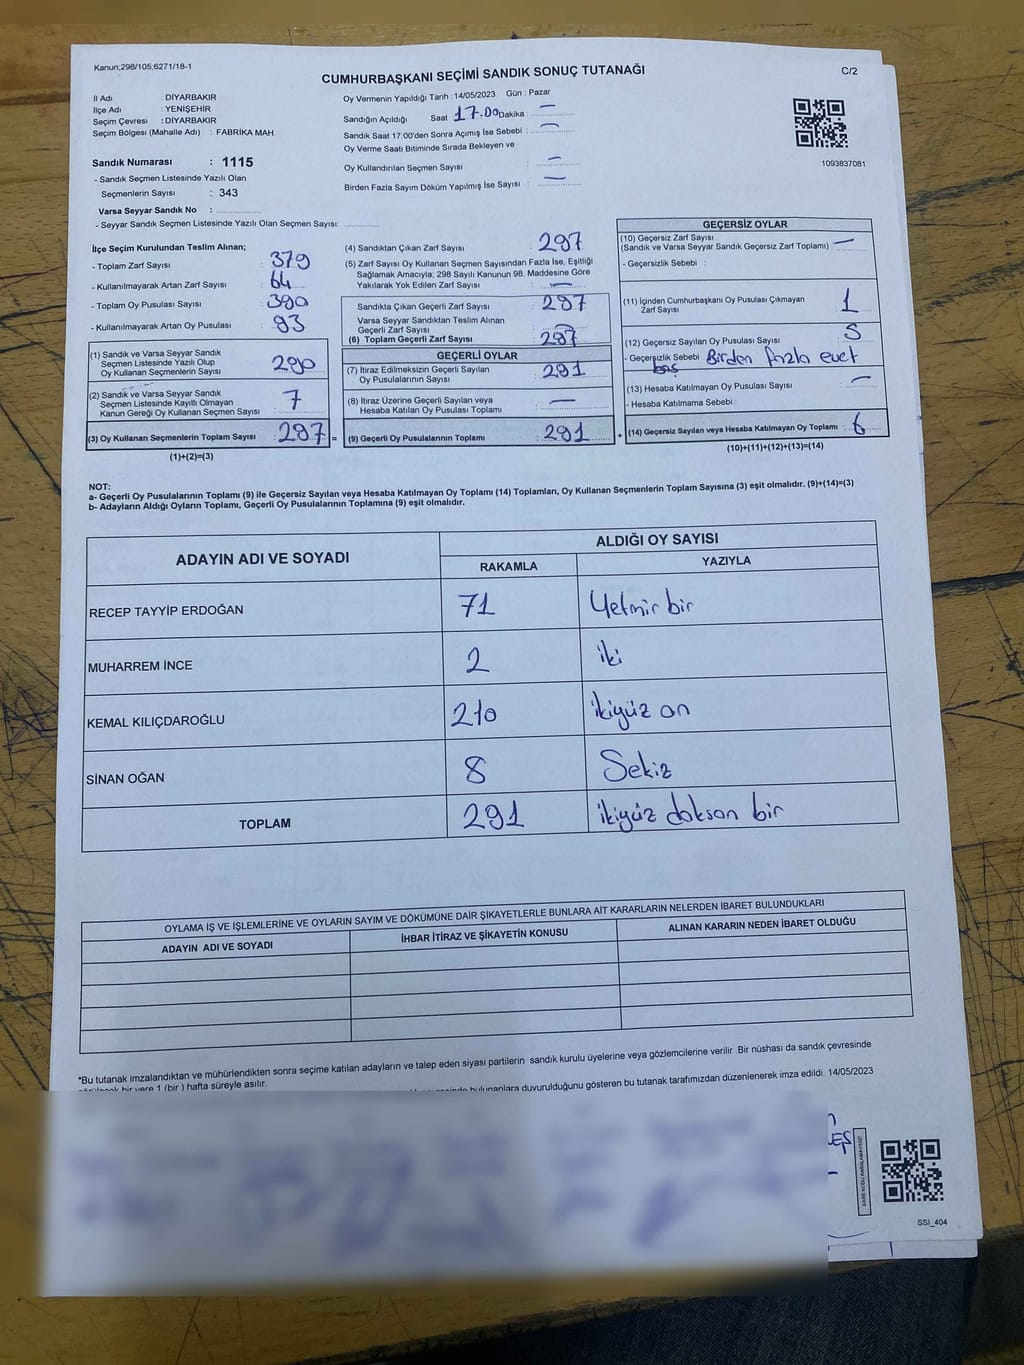 Kanun;298/105;6271/18-1
CUMHURBAŞKANI SEÇİMİ SANDIK SONUÇ TUTANAĞI
C/2
İl Adı : DİYARBAKIR
İlçe Adı : YENİŞEHİR
Seçim Çevresi : DİYARBAKIR
Seçim Bölgesi (Mahalle Adı) : FABRİKA MAH.
Sandık Numarası : 1115
- Sandık Seçmen Listesinde Yazılı Olan
Seçmenlerin Sayısı : 343
Varsa Seyyar Sandık No :
- Seyyar Sandık Seçmen Listesinde Yazılı Olan Seçmen Sayısı:
Oy Vermenin Yapıldığı Tarih : 14/05/2023 Gün : Pazar
Sandığın Açıldığı Saat 17.00 Dakika : —
Sandık Saat 17:00'den Sonra Açımış İse Sebebi : —
Oy Verme Saati Bitiminde Sırada Bekleyen ve
Oy Kullandırılan Seçmen Sayısı : —
Birden Fazla Sayım Döküm Yapılmış İse Sayısı : —
1093837081
İlçe Seçim Kurulundan Teslim Alınan;
- Toplam Zarf Sayısı : 379
- Kullanılmayarak Artan Zarf Sayısı : 64
- Toplam Oy Pusulası Sayısı : 390
- Kullanılmayarak Artan Oy Pusulası : 93
(1) Sandık ve Varsa Seyyar Sandık
Seçmen Listesinde Yazılı Olup
Oy Kullanan Seçmenlerin Sayısı 290
(2) Sandık ve Varsa Seyyar Sandık
Seçmen Listesinde Kayıtlı Olmayan
Kanun Gereği Oy Kullanan Seçmen Sayısı : 7
(3) Oy Kullanan Seçmenlerin Toplam Sayısı : 297 =
(1)+(2)=(3)
(4) Sandıktan Çıkan Zarf Sayısı : 297
(5) Zarf Sayısı Oy Kullanan Seçmen Sayısından Fazla İse, Eşitliği
Sağlamak Amacıyla; 298 Sayılı Kanunun 98. Maddesine Göre
Yakılarak Yok Edilen Zarf Sayısı : —
Sandıkta Çıkan Geçerli Zarf Sayısı : 297
Varsa Seyyar Sandıktan Teslim Alınan
Geçerli Zarf Sayısı : —
(6) Toplam Geçerli Zarf Sayısı : 297
GEÇERLİ OYLAR
(7) İtiraz Edilmeksizin Geçerli Sayılan
Oy Pusulalarının Sayısı : 291
(8) İtiraz Üzerine Geçerli Sayılan veya
Hesaba Katılan Oy Pusulası Toplamı : —
(9) Geçerli Oy Pusulalarının Toplamı : 291 +
GEÇERSİZ OYLAR
(10) Geçersiz Zarf Sayısı
(Sandık ve Varsa Seyyar Sandık Geçersiz Zarf Toplamı) : —
- Geçersizlik Sebebi :
(11) İçinden Cumhurbaşkanı Oy Pusulası Çıkmayan
Zarf Sayısı : 1
(12) Geçersiz Sayılan Oy Pusulası Sayısı : 5
- Geçersizlik Sebebi : Birden fazla evet
(13) Hesaba Katılmayan Oy Pusulası Sayısı : —
- Hesaba Katılmama Sebebi :
(14) Geçersiz Sayılan veya Hesaba Katılmayan Oy Toplamı : 6
(10)+(11)+(12)+(13)=(14)
NOT:
a- Geçerli Oy Pusulalarının Toplamı (9) ile Geçersiz Sayılan veya Hesaba Katılmayan Oy Toplamı (14) Toplamları, Oy Kullanan Seçmenlerin Toplam Sayısına (3) eşit olmalıdır. (9)+(14)=(3)
b- Adayların Aldığı Oyların Toplamı, Geçerli Oy Pusulalarının Toplamına (9) eşit olmalıdır.
ADAYIN ADI VE SOYADI ALDIĞI OY SAYISI
RAKAMLA YAZIYLA
RECEP TAYYİP ERDOĞAN 71 Yetmir bir
MUHARREM İNCE 2 iki
KEMAL KILIÇDAROĞLU 210 ikiyüz on
SİNAN OĞAN 8 Sekiz
TOPLAM 291 ikiyüz doksan bir
OYLAMA İŞ VE İŞLEMLERİNE VE OYLARIN SAYIM VE DÖKÜMÜNE DAİR ŞİKAYETLERLE BUNLARA AİT KARARLARIN NELERDEN İBARET BULUNDUKLARI
ADAYIN ADI VE SOYADI İHBAR İTİRAZ VE ŞİKAYETİN KONUSU ALINAN KARARIN NEDEN İBARET OLDUĞU
*Bu tutanak imzalandıktan ve mühürlendikten sonra seçime katılan adayların ve talep eden siyasi partilerin sandık kurulu üyelerine veya gözlemcilerine verilir .Bir nüshası da sandık çevresinde
bir yere 1 (bir ) hafta süreyle asılır.
bulunanlara duyurulduğunu gösteren bu tutanak tarafımızdan düzenlenerek imza edildi. 14/05/2023
KARE KODU KARALAMAYINIZ!
SSI_404